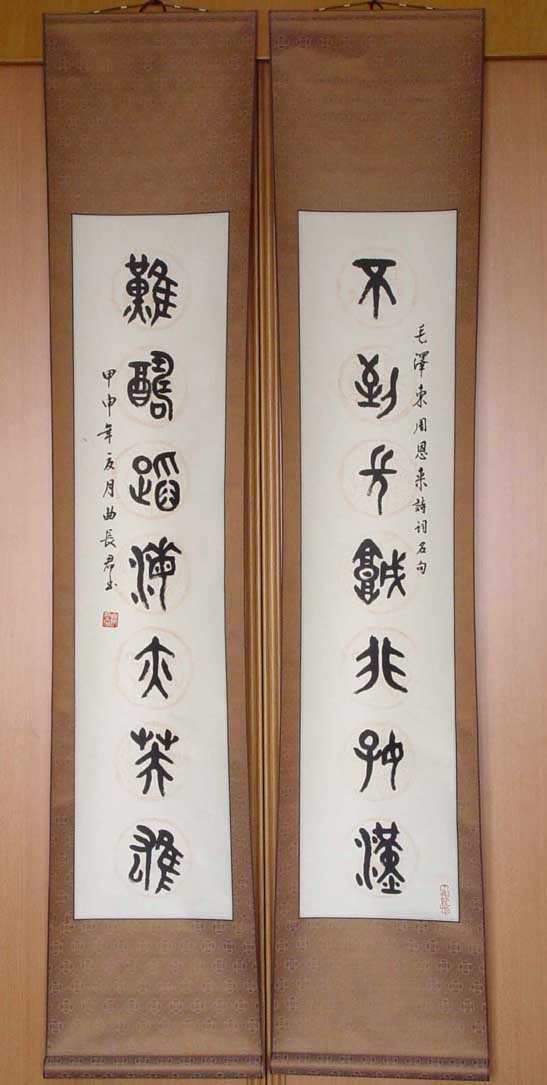 毛澤東周恩来詩词名句
不到長城非好漢
難酬蹈海亦英雄
甲申年夏月曲長君书